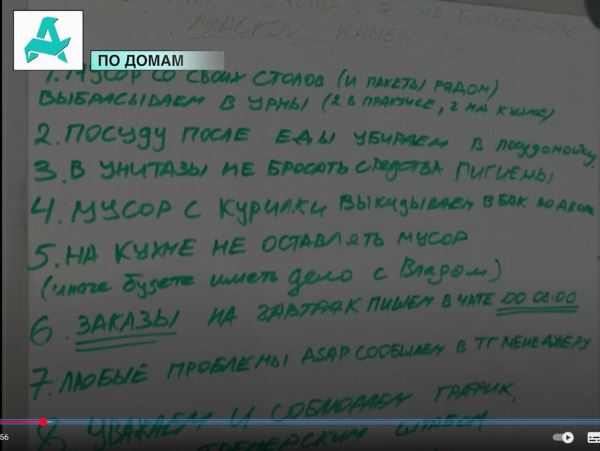 ПО ДОМАМ
МАСКОЙ
1. МУСОР СО СВОИХ СТОЛОВ (И ПАКЕТЫ РЯДОМ)
ВЫБРАСЫВАЕМ В УРНЫ (2 В ПРАКТИСЕ, 2 НА КУХНЕ)
2. ПОСУДУ ПОСЛЕ ЕДЫ УБИРАЕМ В посудомойку
3. В УНИТАЗЫ НЕ БРОСАТЬ СРЕДСТВА ГИГИЕНЫ
4. МУСОР С КУРИЛКИ ВЫКИДЫВАЕМ В БАК
5. НА КУХНЕ НЕ ОСТАВЛЯТЬ МУСОР
(иначе будете иметь дело с Владом)
6. ЗАКАЗЫ НА ЗАВТРАК ПИШЕМ В ЧАТЕ DO 08:00
7. ЛЮБЫЕ ПРОБЛЕМЫ ASAP СООБЩАЕМ В ТГ МЕНЕДЖЕРУ
8. УВАЖАЕМ И СОБЛЮДАЕМ ГРАФИК,
56